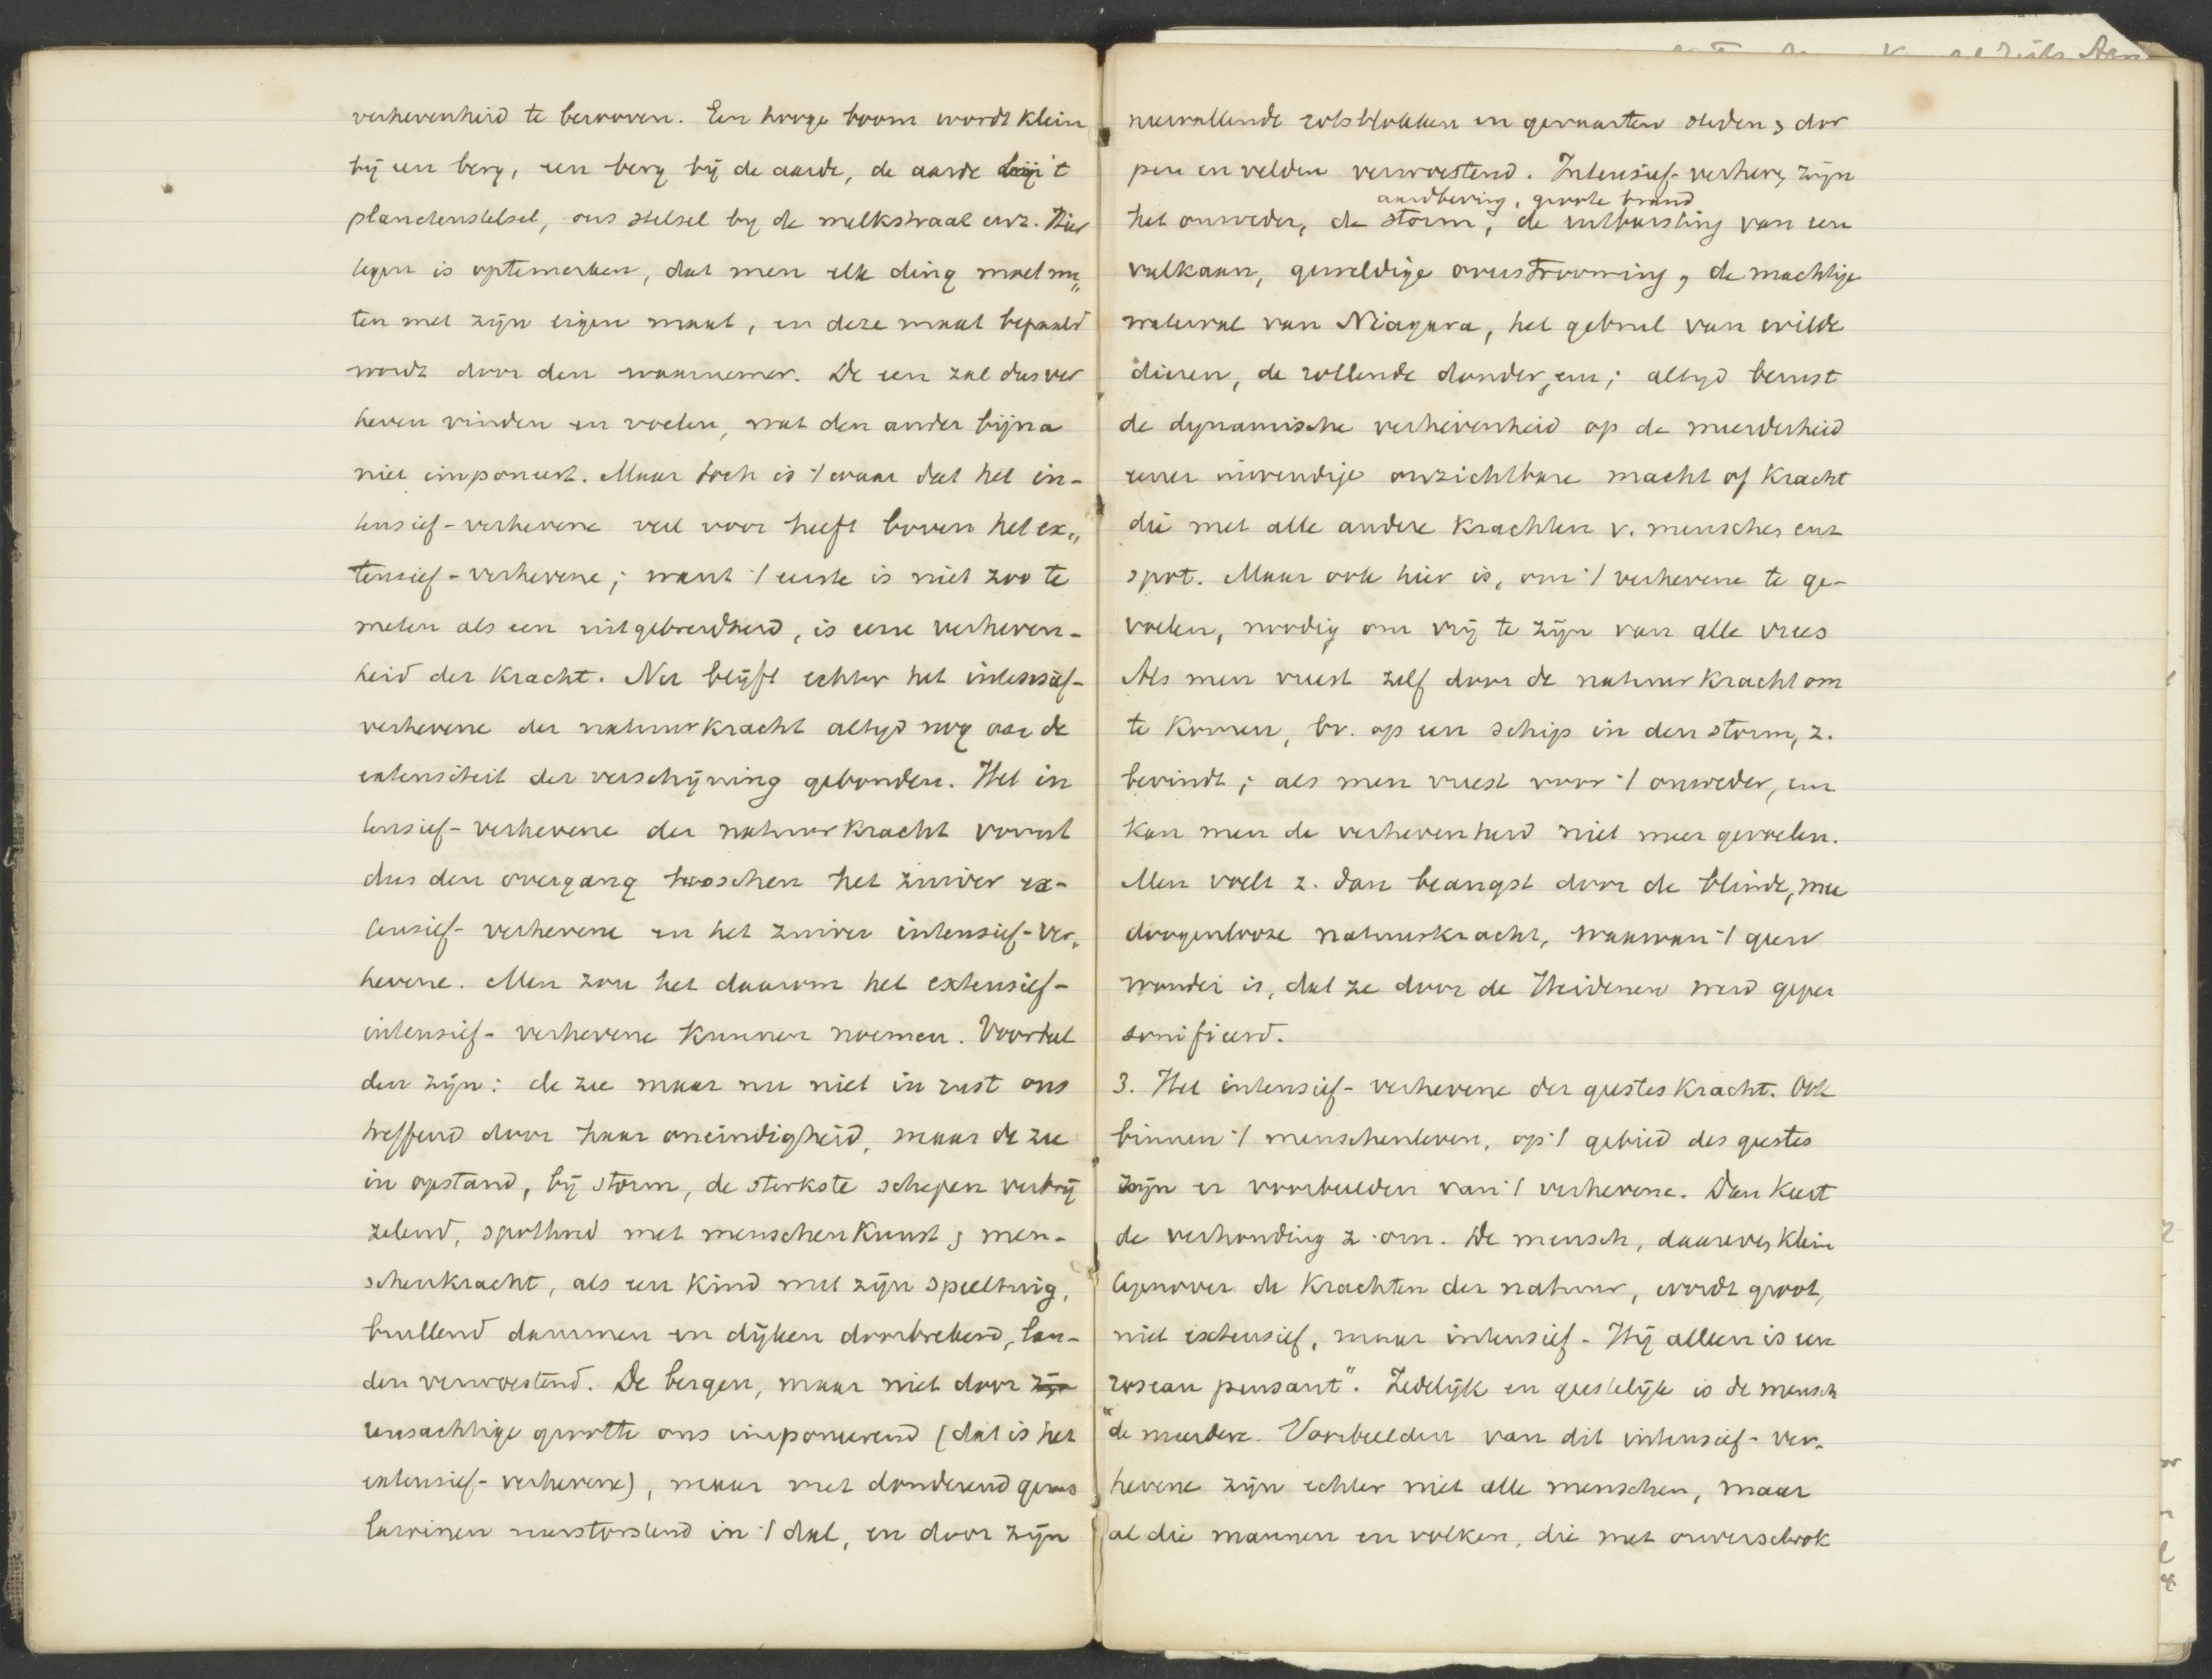 verhevenheid te berooven. Een hooge boom wordt klein
bij een berg, een berg bij de aarde, de aarde bij 't
planetenstelsel, ons stelsel by de melkstraal enz. Hier
tegen is optemerken, dat men elk ding moet me„
ten met zijn eigen maat, en deze maat bepaald
wordt door den waarnemer. De een zal dus ver
heven vinden en voelen, wat den ander bijna
niet imponeert. Maar toch is 't waar dat het in-
tensief-verhevene veel voor heeft boven het ex„
tensief-verhevene; want 't eerste is niet zoo te
meten als een uitgebreidheid, is eene verheven-
heid der kracht. Nu blijft echter het intensief-
verhevene der natuurkracht altyd nog aan de
extensiteit der verschijning gebonden. Het in
tensief-verhevene der natuurkracht vormt
dus den overgang tusschen het zuiver ex-
tensief-verhevene en het zuiver intensief-ver„
hevene. Men zou het daarom het extensief-
intensief-verhevene kunnen noemen. Voorbeel
den zijn: de zee maar nu niet in rust ons
treffend door haar oneindigheid, maar de zee
in opstand, bij storm, de sterkste schepen verbrij
zelend, spottend met menschenkunst & men-
schenkracht, als een kind met zijn speeltuig,
brullend dammen en dijken doorbrekend, lan-
den verwoestend. De bergen, maar niet door zijn
reusachtige grootte ons imponeerend (dat is het
extensief-verhevene), maar met donderend geraas
lawinen neerstortend in 't dal, en door zijn
neervallende rotsblokken en gevaarten steden & dor
pen en velden verwoestend. Intensief-verheven zijn
aardbeving, groote brand
het onweder, de storm, de uitbarsting van een
vulkaan, geweldige overstrooming, de machtige
waterval van Niagara, het gebrul van wilde
dieren, de rollende donder, enz; altyd berust
de dynamische verhevenheid op de meerderheid
eener inwendige onzichtbare macht of kracht
die met alle andere krachten v. menschen enz
spot. Maar ook hier is, om 't verhevene te ge-
voelen, noodig om vrij te zijn van alle vrees
Als men vreest zelf door de natuurkracht om
te komen, bv. op een schip in den storm, z.
bevindt; als men vreest voor 't onweder, enz
kan men de verhevenheid niet meer gevoelen.
Men voelt z. dan beangst door de blinde, mee
doogenlooze natuurkracht, waarvan 't geen
wonder is, dat ze door de Heidenen werd geper
sonifieerd.
3. Het intensief-verhevene der geesteskracht. Ook
binnen 't menschenleven, op 't gebied des geestes
zijn er voorbeelden van 't verhevene. Dan keert
de verhouding z. om. De mensch, daareven klein
tegenover de krachten der natuur, wordt groot,
niet extensief, maar intensief. Hij alleen is een
„roseau pensant". Zedelijk en geestelijk is de mensch
de meerdere. Voorbeelden van dit intensief-ver-
hevene zijn echter niet alle menschen, maar
al die mannen en volken, die met onverschrok